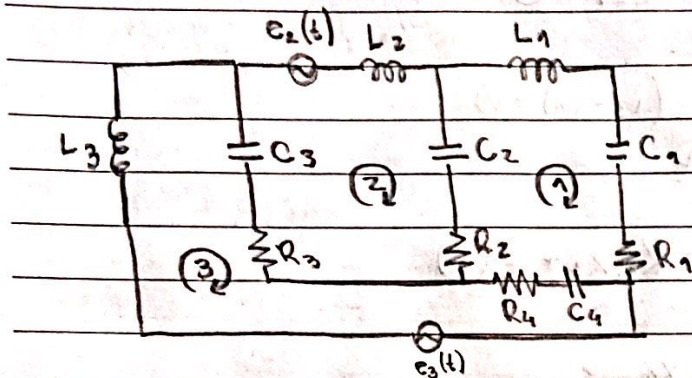 e₂(t) L₂ L₁
L₃ C₃ C₂ C₁
2 1
3 R₃ R₂ R₁
R₄ C₄
e₃(t)